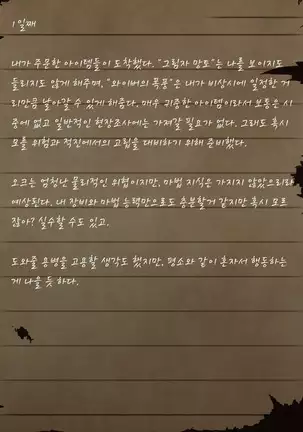 1일째
내가 주문한 아이템들이 도착했다. "그림자 망토"는 나를 보이지도
들리지도 않게 해주며, "와이버의 폭풍"은 내가 비상시에 일정한 거
리만큼 날아갈 수 있게 해준다. 매우 귀중한 아이템이라서 보통은 시
중에 없고 일반적인 현장조사에는 가져갈 필요가 없다. 그래도 혹시
모를 위험과 적진에서의 고립을 대비하기 위해 준비했다.
오크는 엄청난 물리적인 위협이지만, 마법 지식은 가지지 않았으리라
예상된다. 내 장비와 마법 능력만으로도 충분할거 같지만 혹시 모르
잖아? 실수할 수도 있고.
도와줄 용병을 고용할 생각도 했지만, 평소와 같이 혼자서 행동하는
게 나을 듯 하다.